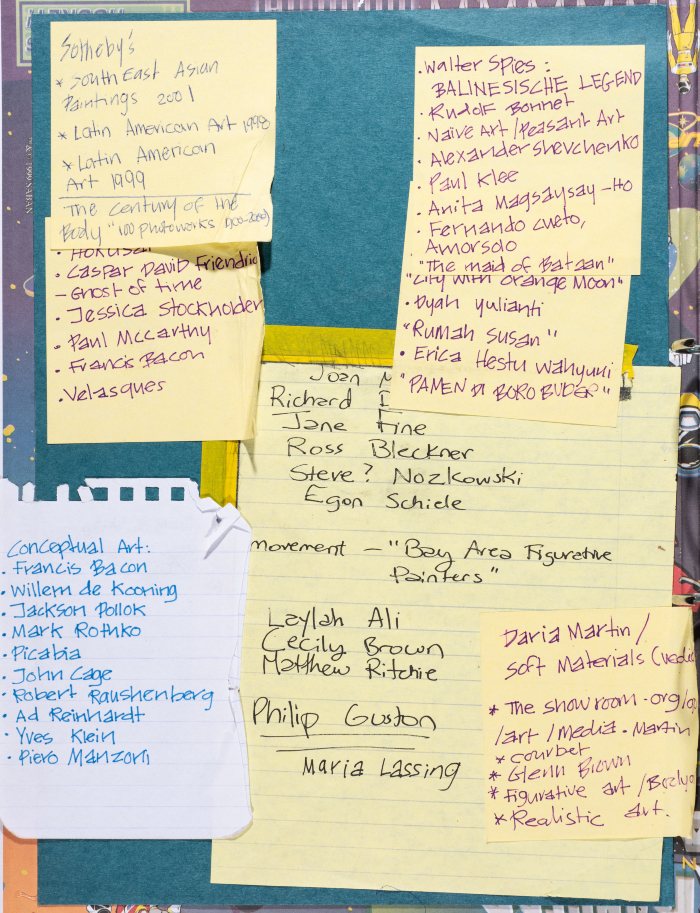 Sotheby's
* South East Asian
Paintings 2001
* Latin American Art 1998
* Latin American
Art 1999
The Century of the
Body "100 photoworks
Hokusai
• Caspar David Friendric
– Ghost of time
• Jessica Stockholder
• Paul McCarthy
• Francis Bacon
• Velasques
• Walter Spies :
BALINESISCHE LEGEND
• Rudolf Bonnet
• Naive Art / Peasant Art
• Alexander Shevchenko
• Paul Klee
• Anita Magsaysay – Ho
• Fernando Cueto,
Amorsolo
"The maid of Bataan"
"City with Orange Moon"
• Dyah Yulianti
"Rumah Susan"
• Erica Hestu Wahyuni
"PAMEN DI BOROBUDER"
Joan
Richard
Jane Fine
Ross Bleckner
Steve? Nozkowski
Egon Schiele
movement – "Bay Area Figurative
Painters"
Laylah Ali
Cecily Brown
Matthew Ritchie
Philip Guston
Maria Lassing
Conceptual Art:
• Francis Bacon
• Willem de Kooning
• Jackson Pollok
• Mark Rothko
• Picabia
• John Cage
• Robert Raushenberg
• Ad Reinhardt
• Yves Klein
• Piero Manzoni
Daria Martin /
Soft Materials
* The showroom.org/
/art/media.Martin
* Courbet
* Glenn Brown
* Figurative art /
* Realistic Art.